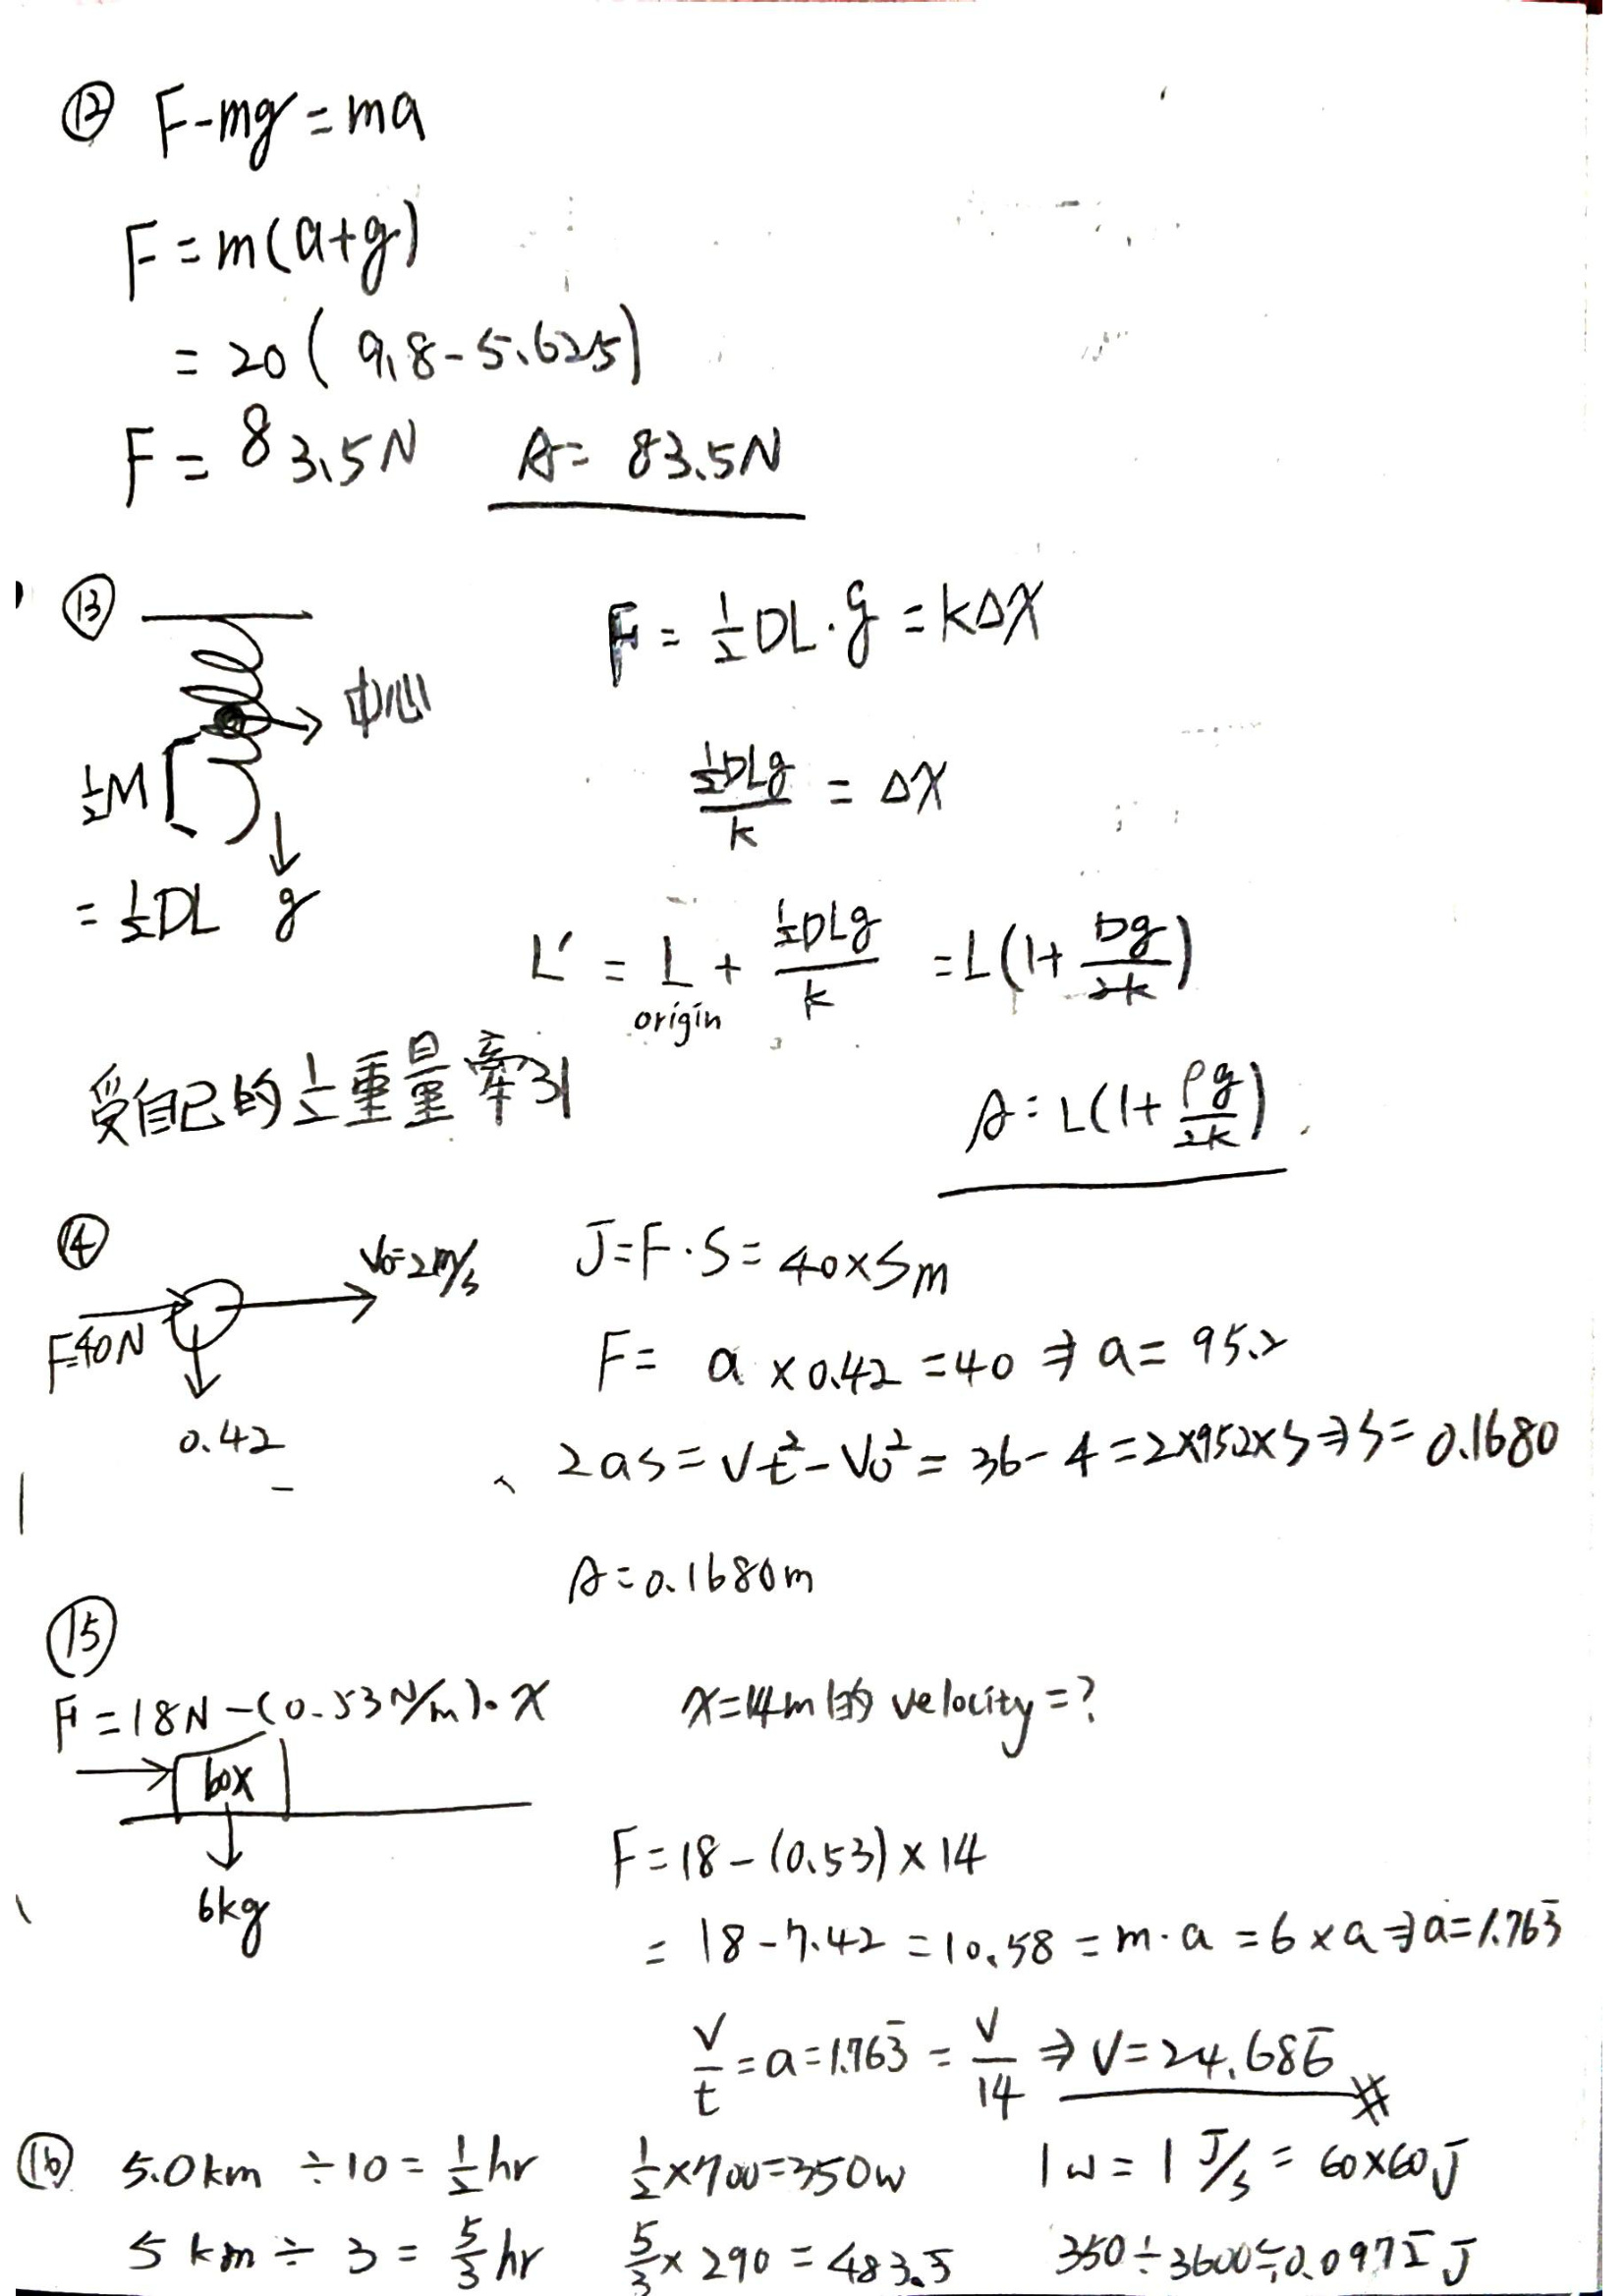 ⑫ F-mg=ma
F=m(a+g)
=20(9.8-5.625)
F=83.5N A=83.5N
⑬
中心
½M
=½DL g
F=½DL·g=kΔX
½DLg/k=ΔX
L'=L+½DLg/k=L(1+Dg/2k)
origin
受自己的½重量牽引
A=L(1+ρg/2k)
⑭
V₀=2m/s
F=40N
0.42
J=F·S=40×Sm
F=a×0.42=40⇒a=95.2
2as=Vt²-V₀²=36-4=2×952×S⇒S=0.1680
A=0.1680m
⑮
F=18N-(0.53N/m)·X
box
6kg
X=14m的velocity=?
F=18-(0.53)×14
=18-7.42=10.58=m·a=6×a⇒a=1.763̅
V/t=a=1.763̅=V/14⇒V=24.686̅
⑯ 5.0km÷10=½hr ½×700=350w 1w=1J/s=60×60J
5km÷3=5/3hr 5/3×290=483.3̅ 350÷3600≒0.0972̅J